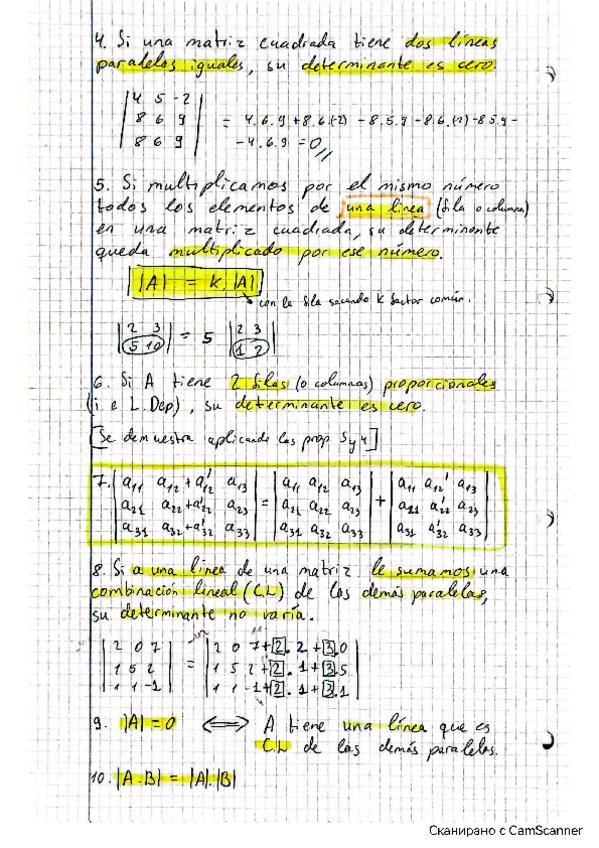 4. Si una matriz cuadrada tiene dos líneas
paralelas iguales, su determinante es cero.
|4 5 -2|
|8 6 9| = 4.6.9 + 8.6.(-2) - 8.5.9 - 8.6.(-2) - 8.5.9 -
|8 6 9| - 4.6.9 = 0//
5. Si multiplicamos por el mismo número
todos los elementos de una línea (fila o columna)
en una matriz cuadrada, su determinante
queda multiplicado por ese número.
|A| = k.|A|
con la fila sacando k factor común.
|2 3| = 5 |2 3|
|5 10| |1 2|
6. Si A tiene 2 filas (o columnas) proporcionales
(i e L.Dep), su determinante es cero.
[Se demuestra aplicando las prop 5 y 4]
7. |a11 a12 + a'12 a13| |a11 a12 a13| |a11 a12' a13|
|a21 a22 + a'22 a23| = |a21 a22 a23| + |a21 a'22 a23|
|a31 a32 + a'32 a33| |a31 a32 a33| |a31 a'32 a33|
8. Si a una línea de una matriz le sumamos una
combinación lineal (C.L) de las demás paralelas,
su determinante no varía.
|2 0 7| |2 0 7+2.2+3.0|
|1 5 2| = |1 5 2+2.1+3.5|
|1 1 -1| |1 1 -1+2.1+3.1|
9. |A| = 0 ⟺ A tiene una línea que es
C.L de las demás paralelas.
10. |A.B| = |A|.|B|
Сканирано с CamScanner